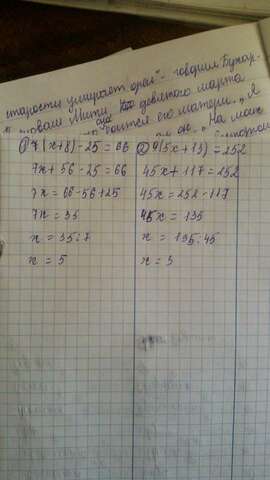 старости умирает орел" - говорил
девятого марта
его матери. „Я
„На моих
① 7(x+8)-25=66
7x+56-25=66
7x=66-56+25
7x=35
x=35:7
x=5
② 9(5x+13)=252
45x+117=252
45x=252-117
45x=135
x=135:45
x=3